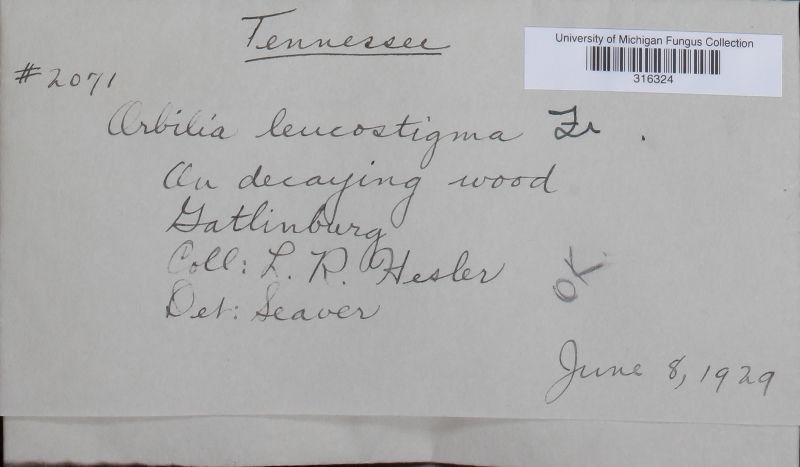 Tennessee
University of Michigan Fungus Collection
316324
#2071
Orbilia leucostigma Fr.
On decaying wood
Gatlinburg
Coll: L. R. Hesler
Det: Seaver
OK.
June 8, 1929